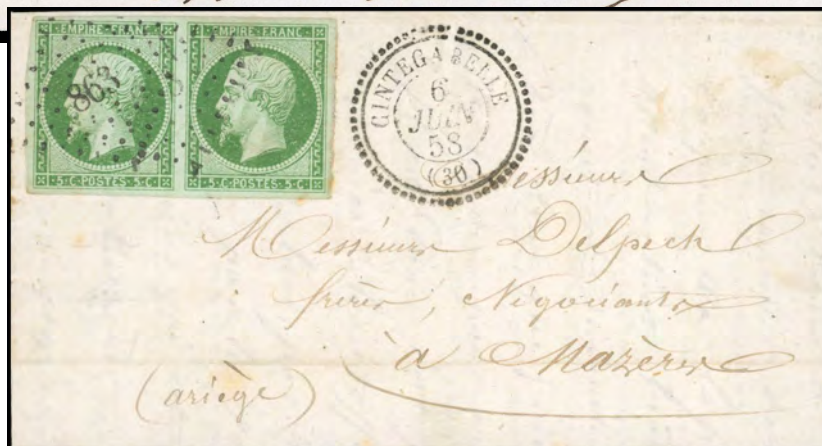 EMPIRE FRANC. EMPIRE FRANC.
863
5·C·POSTES·5·C 5·C·POSTES·5·C
CINTEGABELLE
6
JUIN
58
(30)
essieurs
Messieurs Delpech
frères, Négociants
à Mazères
(ariège)